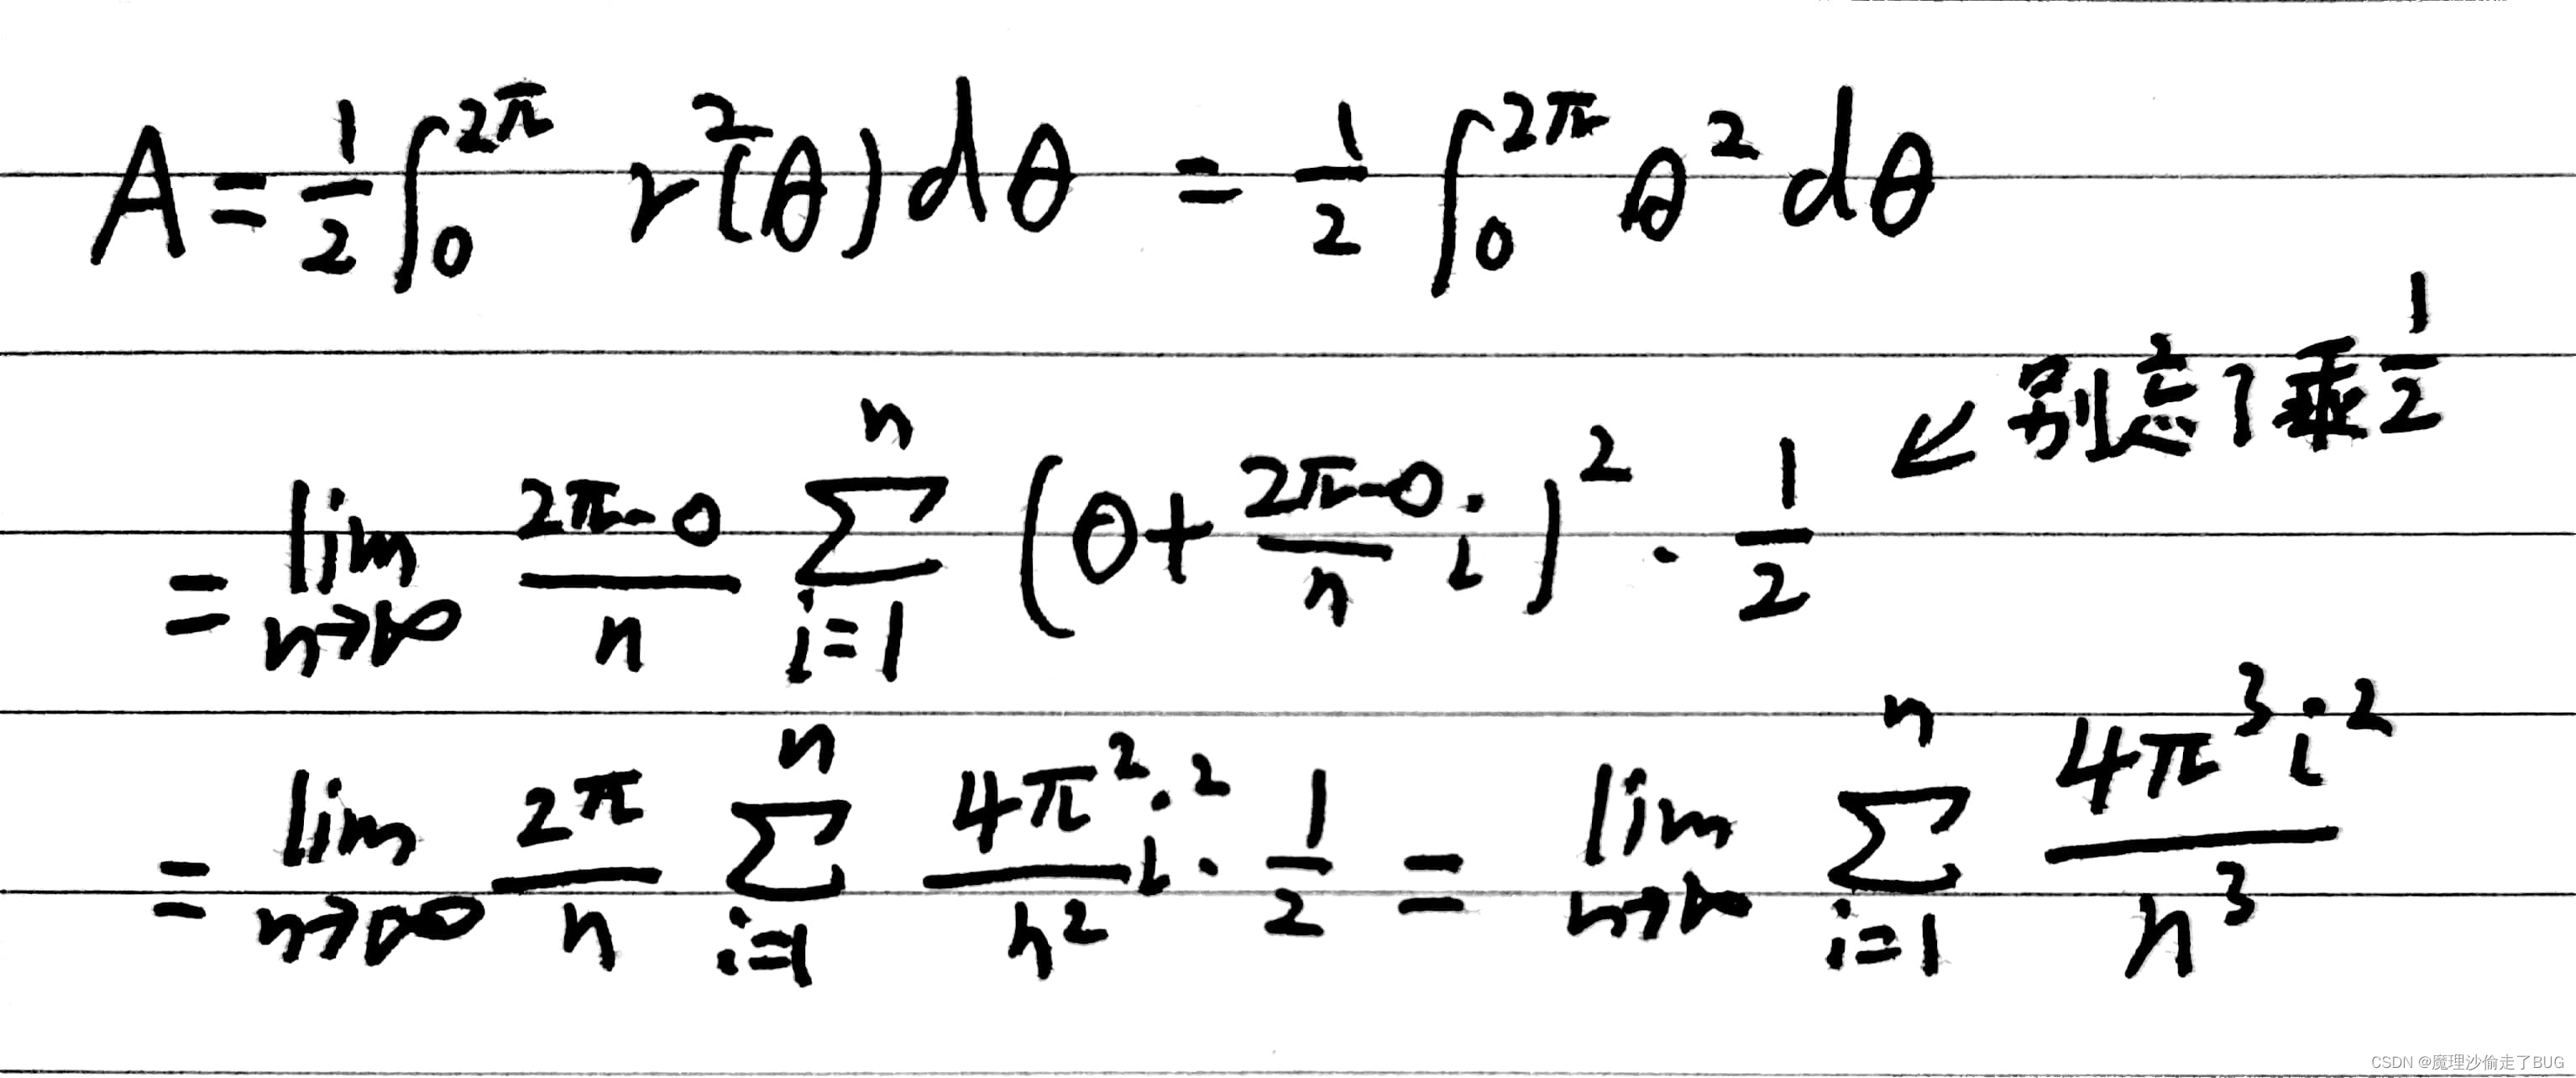 A = \frac{1}{2} \int_0^{2\pi} r^2(θ) dθ = \frac{1}{2} \int_0^{2\pi} θ^2 dθ
别忘了乘 \frac{1}{2}
= \lim_{n→∞} \frac{2π-0}{n} \sum_{i=1}^{n} (0 + \frac{2π-0}{n} i)^2 · \frac{1}{2}
= \lim_{n→∞} \frac{2π}{n} \sum_{i=1}^{n} \frac{4π^2}{n^2} i^2 · \frac{1}{2} = \lim_{n→∞} \sum_{i=1}^{n} \frac{4π^3 i^2}{n^3}
CSDN @魔理沙偷走了BUG